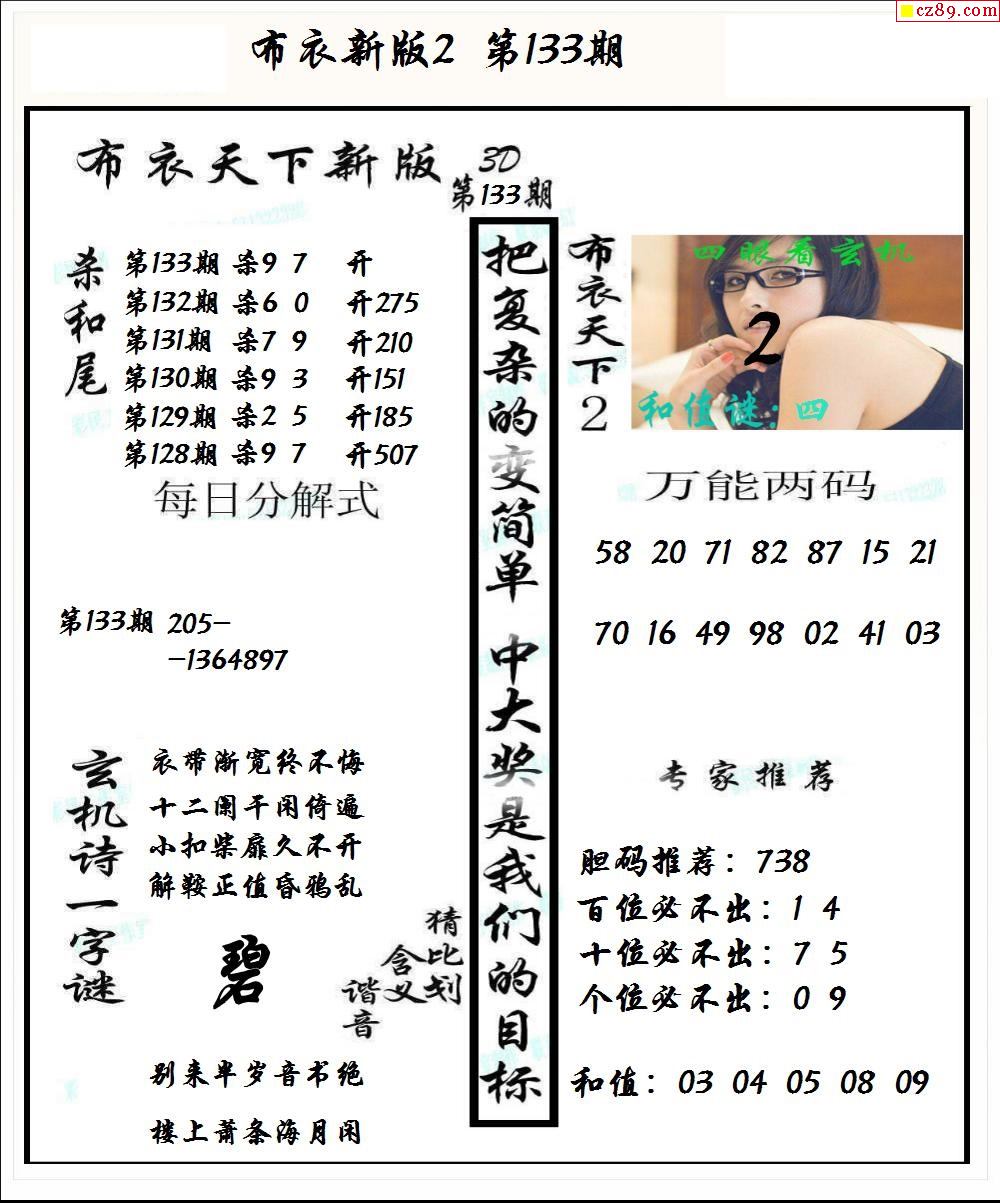 cz89.com
布衣新版2 第133期
布衣天下新版
3D
第133期
杀和尾
第133期 杀9 7 开
第132期 杀6 0 开275
第131期 杀7 9 开210
第130期 杀9 3 开151
第129期 杀2 5 开185
第128期 杀9 7 开507
每日分解式
第133期 205-
-1364897
玄机诗一字谜
衣带渐宽终不悔
十二阑干闲倚遍
小扣柴扉久不开
解鞍正值昏鸦乱
碧
猜比划
含义
谐音
别来半岁音书绝
楼上萧条海月闲
把复杂的变简单 中大奖是我们的目标
布衣天下2
四眼看玄机
2
和值谜:四
万能两码
58 20 71 82 87 15 21
70 16 49 98 02 41 03
专家推荐
胆码推荐：738
百位必不出：1 4
十位必不出：7 5
个位必不出：0 9
和值：03 04 05 08 09